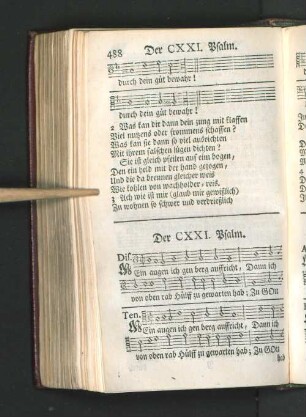 488 Der CXXI. Psalm.
durch dein güt bewahr!
durch dein güt bewahr!
2 Was kan dir dann dein zung mit klaffen
Viel nutzens oder frommens schaffen?
Was kan sie dann so viel ausrichten
Mit ihrem falschen lügen dichten?
Sie ist gleich pfeilen auf eim bogen,
Den ein held mit der hand gezogen,
Und die da brennen gleicher weis
Wie kohlen von wachholder-reis.
3 Ach wie ist mir (glaub mir gewißlich)
Zu wohnen so schwer und verdrießlich
Der CXXI. Psalm.
Dis.
Mein augen ich gen berg auffricht, Dann ich
von oben rab Hülff zu gewarten hab; Zu GOtt
Ten.
Mein augen ich gen berg auffricht, Dann ich
von oben rab Hülff zu gewarten hab; Zu GOtt